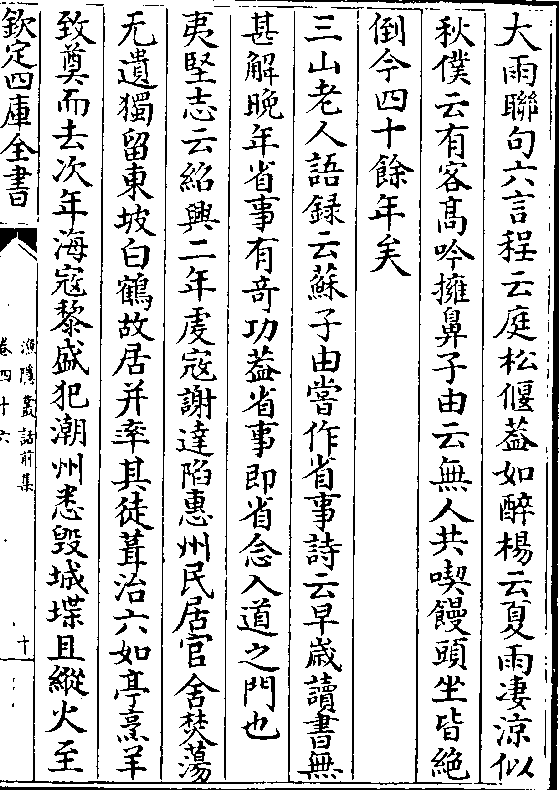 大雨聯句六言程云庭松偃葢如醉楊云夏雨凄涼似
秋僕云有客髙吟擁鼻子由云無人共喫饅頭坐皆絶
倒今四十餘年矣
三山老人語録云蘇子由嘗作省事詩云早嵗讀書無
甚解晚年省事有竒功葢省事即省念入道之門也
夷堅志云紹興二年䖍宼謝達陷惠州民居官舍焚蕩
无遺獨留東坡白鶴故居并率其徒葺治六如亭烹羊
致奠而去次年海宼黎盛犯潮州悉毁城堞且縱火至
欽定四庫全書
漁隱叢話前集
卷四十六
十